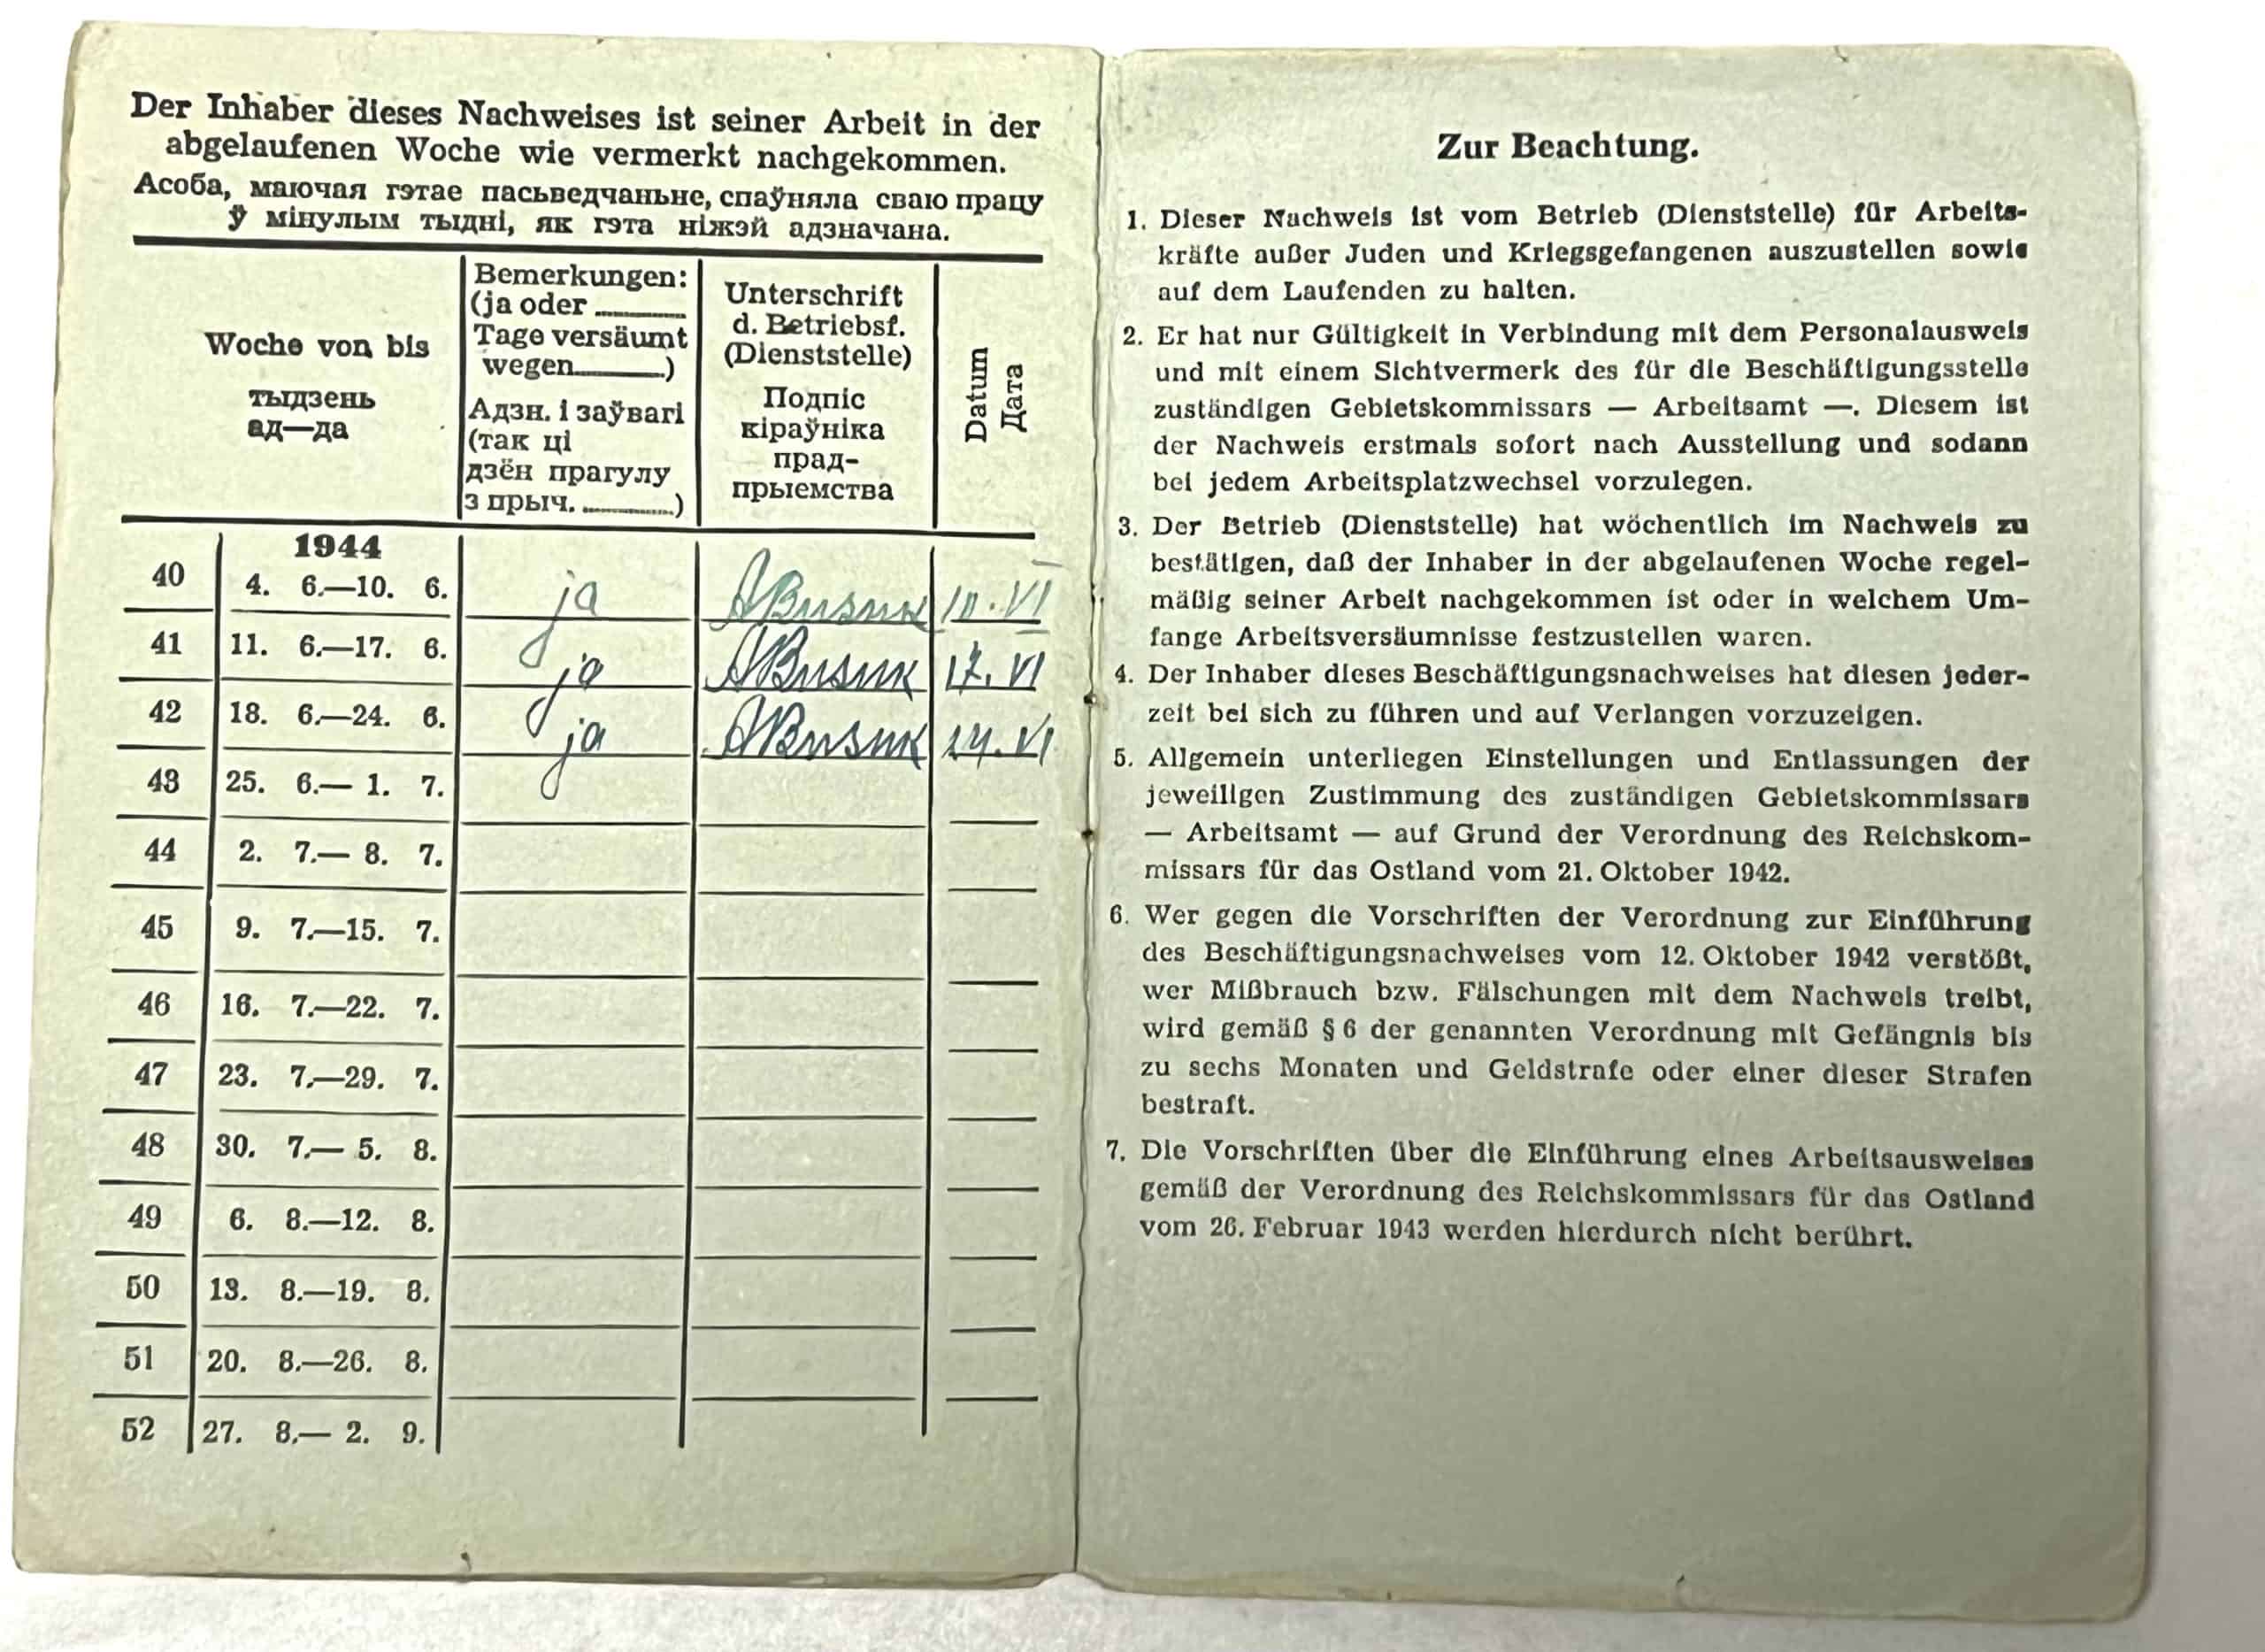 Der Inhaber dieses Nachweises ist seiner Arbeit in der
abgelaufenen Woche wie vermerkt nachgekommen.
Асоба, маючая гэтае пасьведчаньне, спаўняла сваю працу
ў мінулым тыдні, як гэта ніжэй адзначана.
Woche von bis
тыдзень
ад—да
Bemerkungen:
(ja oder ............
Tage versäumt
wegen............)
Адзн. і заўвагі
(так ці
дзён прагулу
з прыч. ............)
Unterschrift
d. Betriebsf.
(Dienststelle)
Подпіс
кіраўніка
прад-
прыемства
Datum
Дата
1944
40 4. 6.—10. 6. ja 10. VI
41 11. 6.—17. 6. ja 17. VI
42 18. 6.—24. 6. ja 24. VI
43 25. 6.— 1. 7.
44 2. 7.— 8. 7.
45 9. 7.—15. 7.
46 16. 7.—22. 7.
47 23. 7.—29. 7.
48 30. 7.— 5. 8.
49 6. 8.—12. 8.
50 13. 8.—19. 8.
51 20. 8.—26. 8.
52 27. 8.— 2. 9.
Zur Beachtung.
1. Dieser Nachweis ist vom Betrieb (Dienststelle) für Arbeits-
kräfte außer Juden und Kriegsgefangenen auszustellen sowie
auf dem Laufenden zu halten.
2. Er hat nur Gültigkeit in Verbindung mit dem Personalausweis
und mit einem Sichtvermerk des für die Beschäftigungsstelle
zuständigen Gebietskommissars — Arbeitsamt —. Diesem ist
der Nachweis erstmals sofort nach Ausstellung und sodann
bei jedem Arbeitsplatzwechsel vorzulegen.
3. Der Betrieb (Dienststelle) hat wöchentlich im Nachweis zu
bestätigen, daß der Inhaber in der abgelaufenen Woche regel-
mäßig seiner Arbeit nachgekommen ist oder in welchem Um-
fange Arbeitsversäumnisse festzustellen waren.
4. Der Inhaber dieses Beschäftigungsnachweises hat diesen jeder-
zeit bei sich zu führen und auf Verlangen vorzuzeigen.
5. Allgemein unterliegen Einstellungen und Entlassungen der
jeweiligen Zustimmung des zuständigen Gebietskommissars
— Arbeitsamt — auf Grund der Verordnung des Reichskom-
missars für das Ostland vom 21. Oktober 1942.
6. Wer gegen die Vorschriften der Verordnung zur Einführung
des Beschäftigungsnachweises vom 12. Oktober 1942 verstößt,
wer Mißbrauch bzw. Fälschungen mit dem Nachweis treibt,
wird gemäß § 6 der genannten Verordnung mit Gefängnis bis
zu sechs Monaten und Geldstrafe oder einer dieser Strafen
bestraft.
7. Die Vorschriften über die Einführung eines Arbeitsausweises
gemäß der Verordnung des Reichskommissars für das Ostland
vom 26. Februar 1943 werden hierdurch nicht berührt.